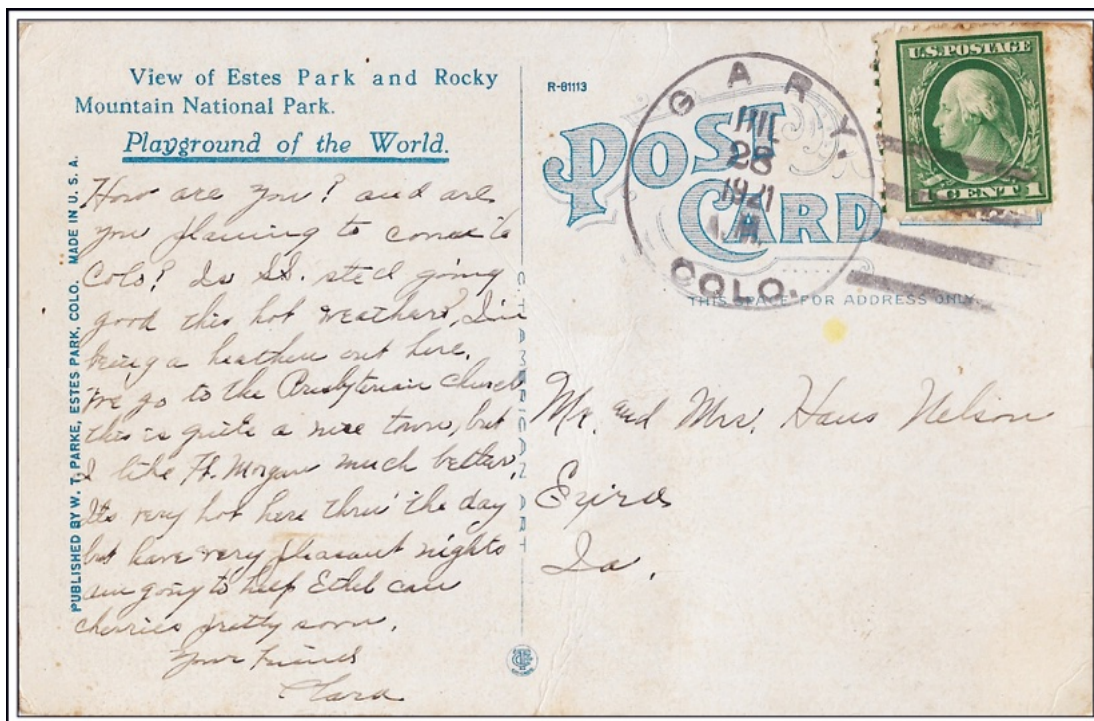 View of Estes Park and Rocky
Mountain National Park.
Playground of the World.
PUBLISHED BY W. T. PARKE, ESTES PARK, COLO. MADE IN U. S. A.
How are you? and are
you planning to come to
Colo? Is S.S. still going
good this hot weather? I'm
being a heathen out here.
We go to the Presbyterian church
this is quite a nice town, but
I like Ft. Morgan much better,
Its very hot here thru' the day
but have very pleasant nights
am going to help Ethel can
cherries pretty soon.
Your Friend
Clara
C. T. AMERICAN ART
R-81113
POST CARD
THIS SPACE FOR ADDRESS ONLY.
GARY.
28
1921
COLO.
U.S. POSTAGE
1 CENT 1
Mr. and Mrs. Hans Nelson
Exira
Ia.